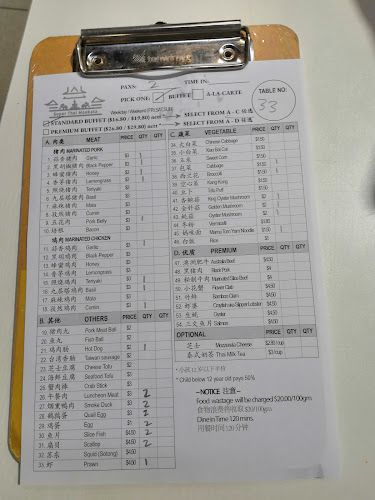 JAL
Super Thai Mookata
PAX: 2 TIME IN:
PICK ONE: BUFFET A-LA CARTE
TABLE NO: 33
STANDARD BUFFET ($16.80 / $19.80) nett SELECT FROM A - C 任选
PREMIUM BUFFET ($26.80 / $29.80) nett SELECT FROM A - D 任选
A. 肉类 MEAT PRICE QTY QTY
猪肉 MARINATED PORK
1. 蒜香猪肉 Garlic $3 1
2. 黑胡椒猪肉 Black Pepper $3
3. 蜂蜜猪肉 Honey $3 1
4. 香茅猪肉 Lemongrass $3 1
5. 照烧猪肉 Teriyaki $3
6. 九层塔猪肉 Basil $3
7. 麻辣猪肉 Mala $3
8. 孜然猪肉 Cumin $3
9. 五花肉 Pork Belly $3
10. 培根 Bacon $3
鸡肉 MARINATED CHICKEN
11. 蒜香鸡肉 Garlic $3
12. 黑胡椒鸡肉 Black Pepper $3
13. 蜂蜜鸡肉 Honey $3
14. 香茅鸡肉 Lemongrass $3
15. 照烧鸡肉 Teriyaki $3
16. 九层塔鸡肉 Basil $3
17. 麻辣鸡肉 Mala $3
18. 孜然鸡肉 Cumin $3
B. 其他 OTHERS PRICE QTY QTY
19. 猪肉丸 Pork Meat Ball $2
20. 鱼丸 Fish Ball $2
21. 鸡肉肠 Hot Dog $2 1
22. 台湾香肠 Taiwan sausage $2
23. 芝士豆腐 Cheese Tofu $2
24. 海鲜豆腐 Seafood Tofu $2
25. 蟹肉棒 Crab Stick $2
26. 午餐肉 Luncheon Meat $2 2
27. 烟熏鸭肉 Smoke Duck $3 2
28. 鹌鹑蛋 Quail Egg $3 2
29. 鸡蛋 Egg $1 2
30. 鱼片 Slice Fish $4.50
31. 扇贝 Scallop $4.50 2
32. 苏东 Squid (Sotong) $4.50
33. 虾 Prawn $4.50 1
C. 蔬菜 VEGETABLE PRICE QTY QTY
34. 大白菜 Chinese Cabbage $1.50
35. 小白菜 Xiao Bai Cai $1.50
36. 玉米 Sweet Corn $1.50
37. 包菜 Cabbage $1.50
38. 西兰花 Broccoli $1.50
39. 空心菜 Kang Kong $1.50
40. 豆卜 Tofu Puff $1.50
41. 杏鲍菇 King Oyster Mushroom $2
42. 金针菇 Golden Mushroom $2
43. 蚝菇 Oyster Mushroom $2
44. 冬粉 Mama Tom Yam Noodle
46. 白饭 Rice $1
D. 优质 PREMIUM PRICE QTY QTY
47. 澳洲肥牛 Australia Beef $4.50
48. 黑猪肉 Black Pork $4
49. 秘制牛肉 Marinated Slice Beef $4.50
50. 小花蟹 Flower Crab $4.50
51. 竹蚌 Bamboo Clam $4.50
52. 虾婆 Crayfish aka Slipper Lobster $4.50
53. 生蚝 Oyster $4.50
54. 三文鱼片 Salmon $4.50
OPTIONAL PRICE QTY QTY
芝士 Mozzarella Cheese $2.80/cup
泰式奶茶 Thai Milk Tea $3/cup
*小孩12岁以下半价
* Child below 12 year old pays 50%
~NOTICE 注意~
Food wastage will be charged $20.00/100gm
食物浪费将收取 $20/100gm
Dine in Time 120 mins.
用餐时间 120 分钟